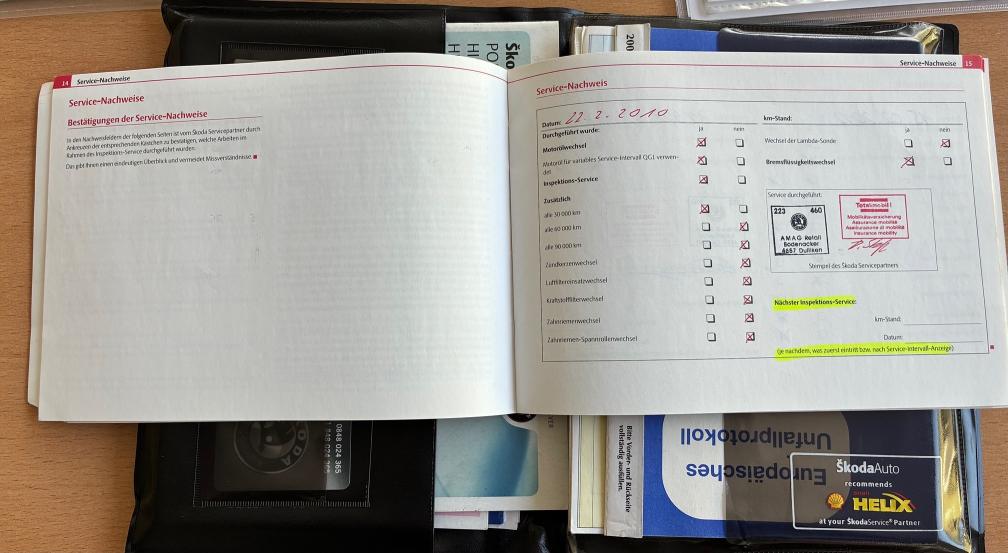 Ško
PO
HI
H
200
14 Service-Nachweise
Service-Nachweise
Bestätigungen der Service-Nachweise
In den Nachweisfeldern der folgenden Seiten ist vom Škoda Servicepartner durch
Ankreuzen der entsprechenden Kästchen zu bestätigen, welche Arbeiten im
Rahmen des Inspektions-Service durchgeführt wurden.
Das gibt Ihnen einen eindeutigen Überblick und vermeidet Missverständnisse.
Service-Nachweise 15
Service-Nachweis
Datum: 22.2.2010
km-Stand:
Durchgeführt wurde:
ja nein
Motorölwechsel
Motoröl für variables Service-Intervall QG1 verwen-
det
Inspektions-Service
Zusätzlich
alle 30 000 km
alle 60 000 km
alle 90 000 km
Zündkerzenwechsel
Luftfiltereinsatzwechsel
Kraftstofffilterwechsel
Zahnriemenwechsel
Zahnriemen-Spannrollenwechsel
ja nein
Wechsel der Lambda-Sonde
Bremsflüssigkeitswechsel
Service durchgeführt:
223 460
AMAG Retail
Bodenacker
4657 Dulliken
Totalmobil!
Mobilitätsversicherung
Assurance mobilité
Assicurazione di mobilità
Insurance mobility
Stempel des Škoda Servicepartners
Nächster Inspektions-Service:
km-Stand:
Datum:
(je nachdem, was zuerst eintritt bzw. nach Service-Intervall-Anzeige)
0848 024 365
848 024 365
Bitte Vorder- und Rückseite
vollständig ausfüllen.
Europäisches
Unfallprotokoll
ŠkodaAuto
recommends
Shell
HELIX
at your ŠkodaService® Partner